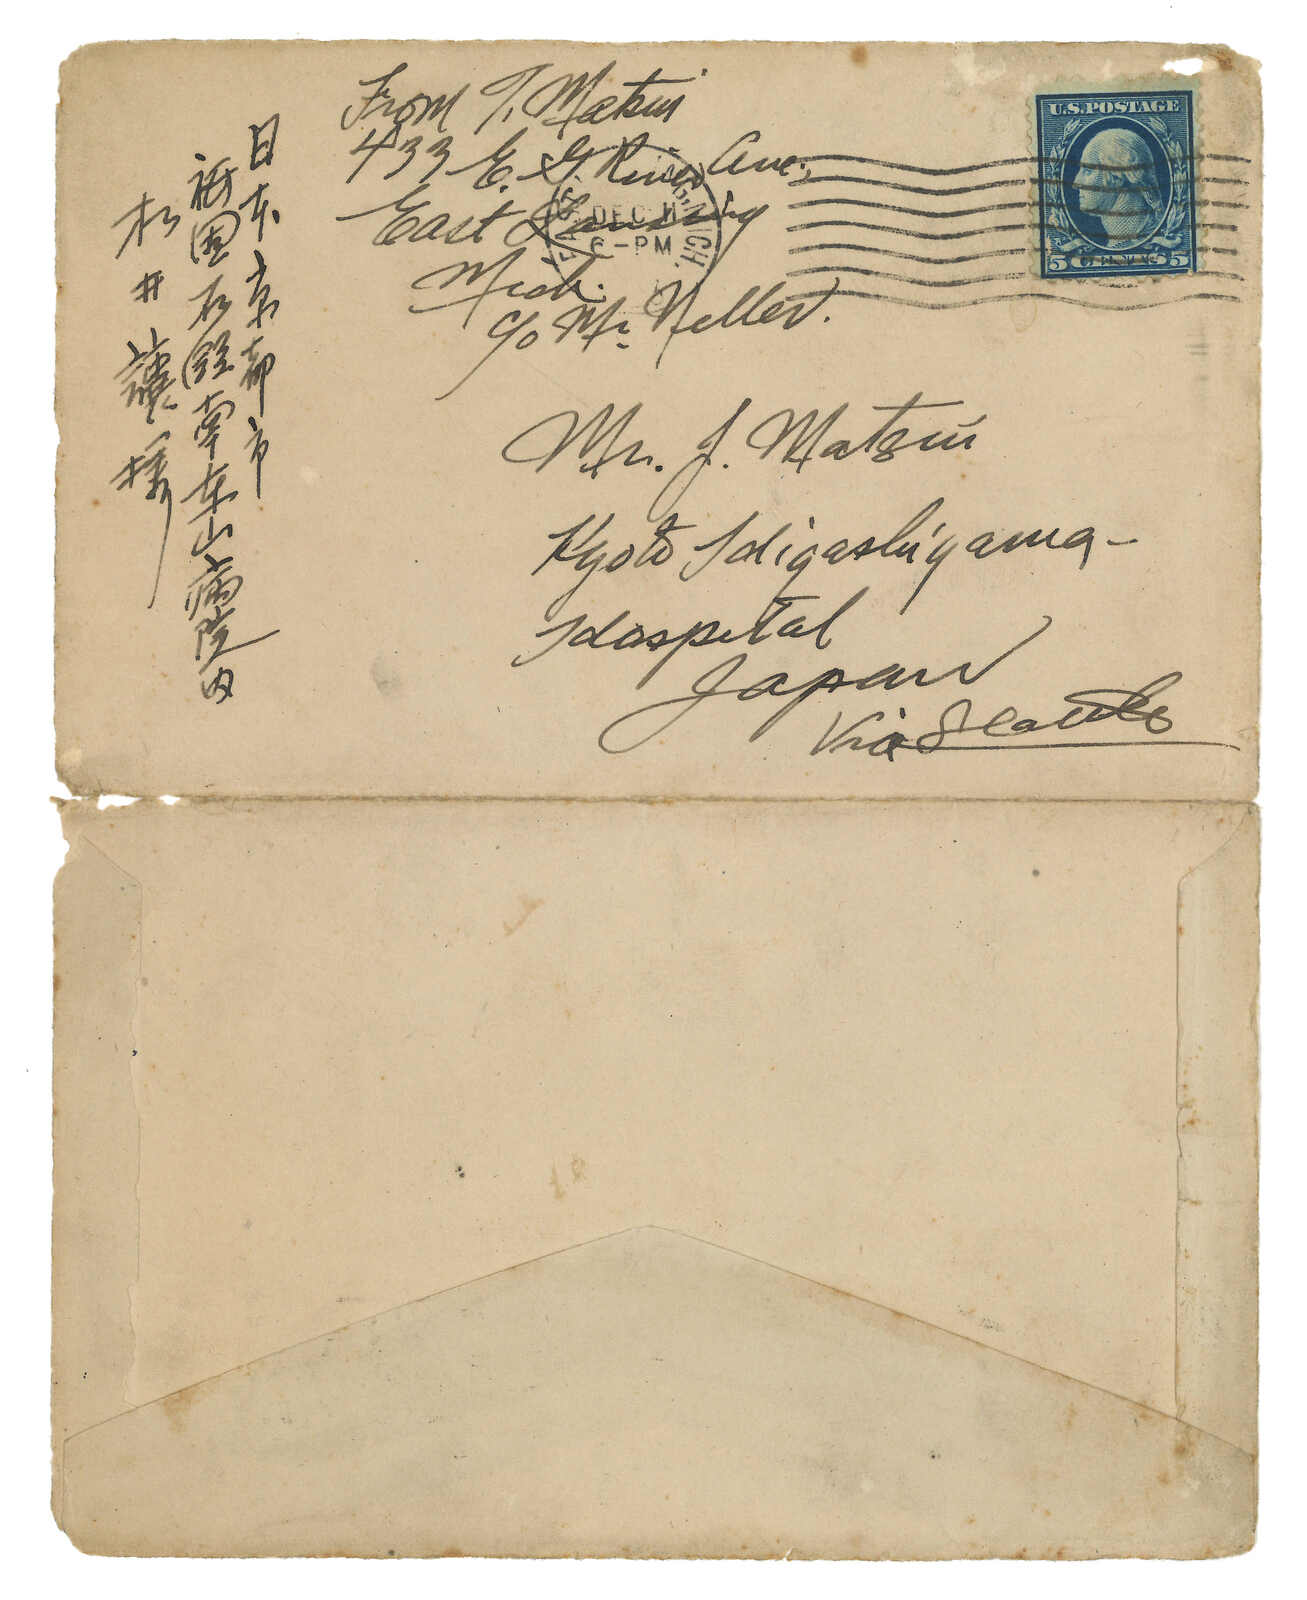 From T. Matsui
433 E. G. River Ave.,
East Lansing
Mich.
c/o Mr. Neller.
DEC 11
6-PM
MICH.
U.S.POSTAGE
5 5
Mr. J. Matsui
Kyoto Higashiyama-
Hospital
Japan
Via Seattle
日本京都市
祇園石段南東山病院内
松井讓様